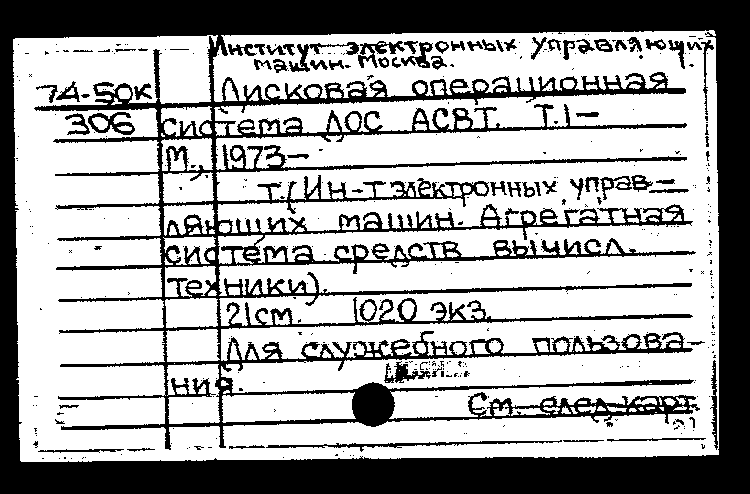 Институт электронных управляющих
машин. Москва.
74-50к Дисковая операционная
306 система ДОС АСВТ. Т.1-
М., 1973-
т. (Ин-т электронных управ-
ляющих машин. Агрегатная
система средств вычисл.
техники).
21см. 1020 экз.
Для служебного пользова-
ния.
См. след. карт.